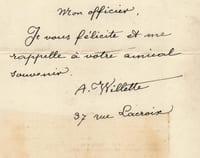 Mon officier,
Je vous félicite et me
rappelle à votre amical
souvenir.
A. Willette
37 rue Lacroix